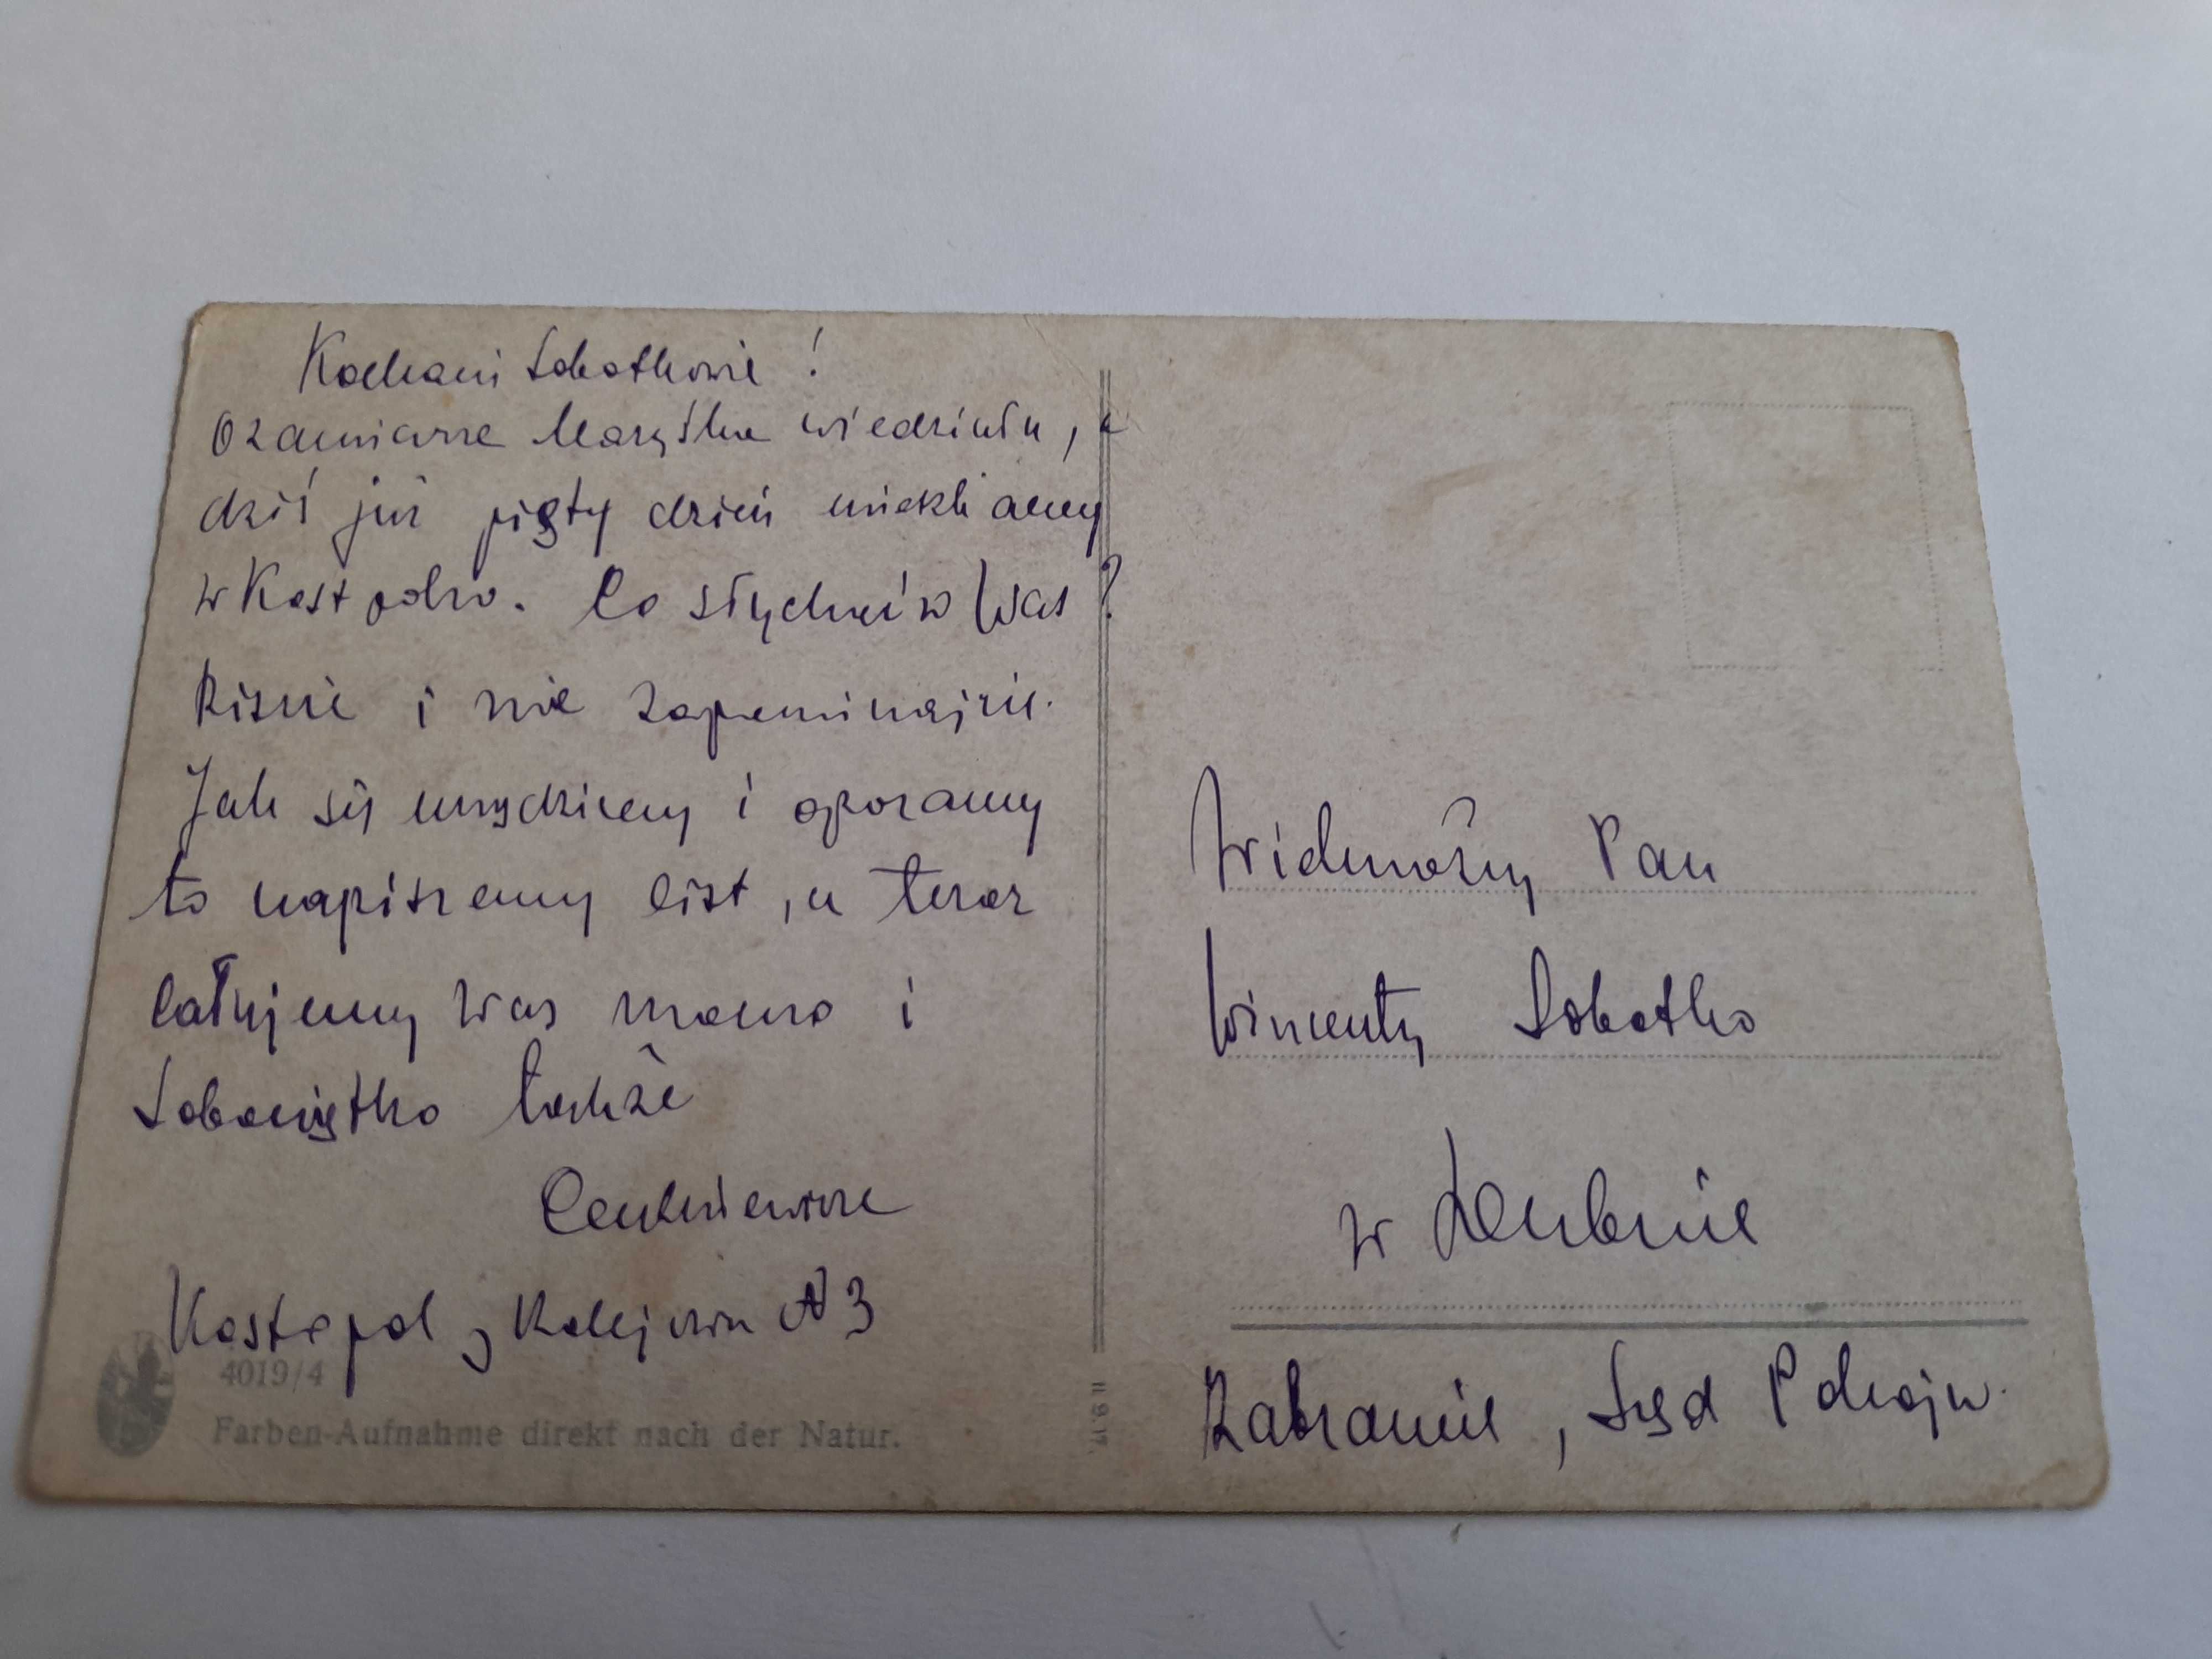 Kochani Sobotkowie!
Oznaimiamy Maryśka wiedziała, a
dziś już piąty dzień mieszkamy
w Kostopolu. Co słychać u Was?
Piszcie i nie zapominajcie.
Jak się urządzimy i oporamy
to napiszemy list, a teraz
całujemy Was mocno i
także
Kostopol, Kolejowa N 3
4019/4
Farben-Aufnahme direkt nach der Natur.
11.9.17.
Wielmożny Pan
Wincenty Sobotko
w Dubnie
Zabramie, Sąd Pokojw.